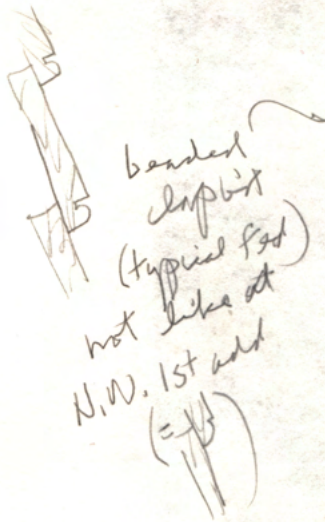 beaded
clapbd
(typical Fed)
not like at
N.W. 1st add
(=
)